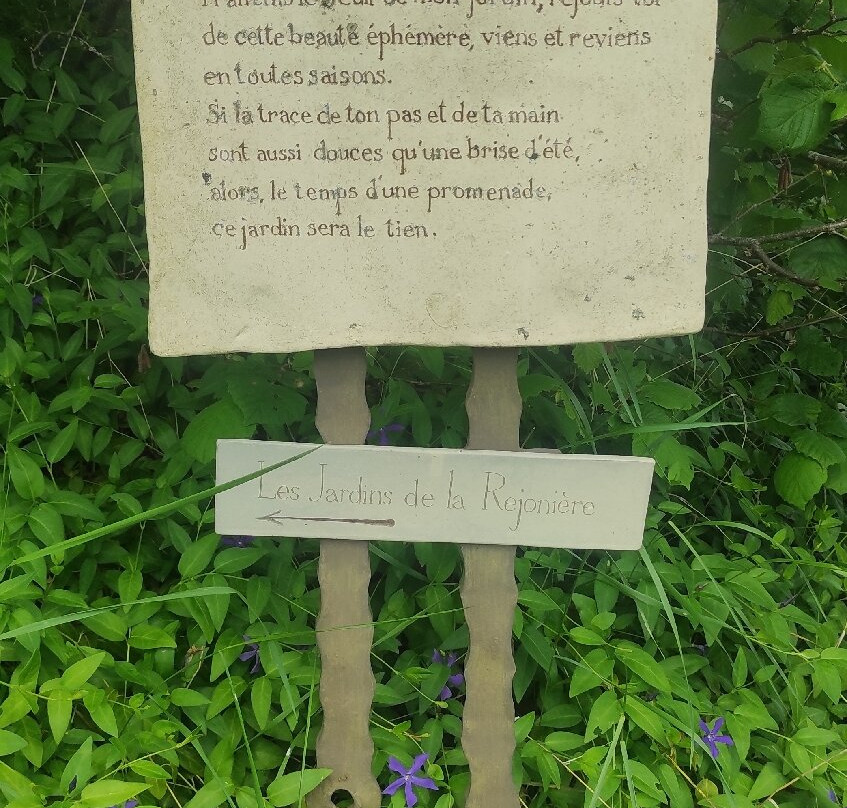 Franchis le seuil de mon jardin, réjouis-toi
de cette beauté éphémère, viens et reviens
en toutes saisons.
Si la trace de ton pas et de ta main
sont aussi douces qu'une brise d'été,
alors, le temps d'une promenade,
ce jardin sera le tien.
Les Jardins de la Rejonière